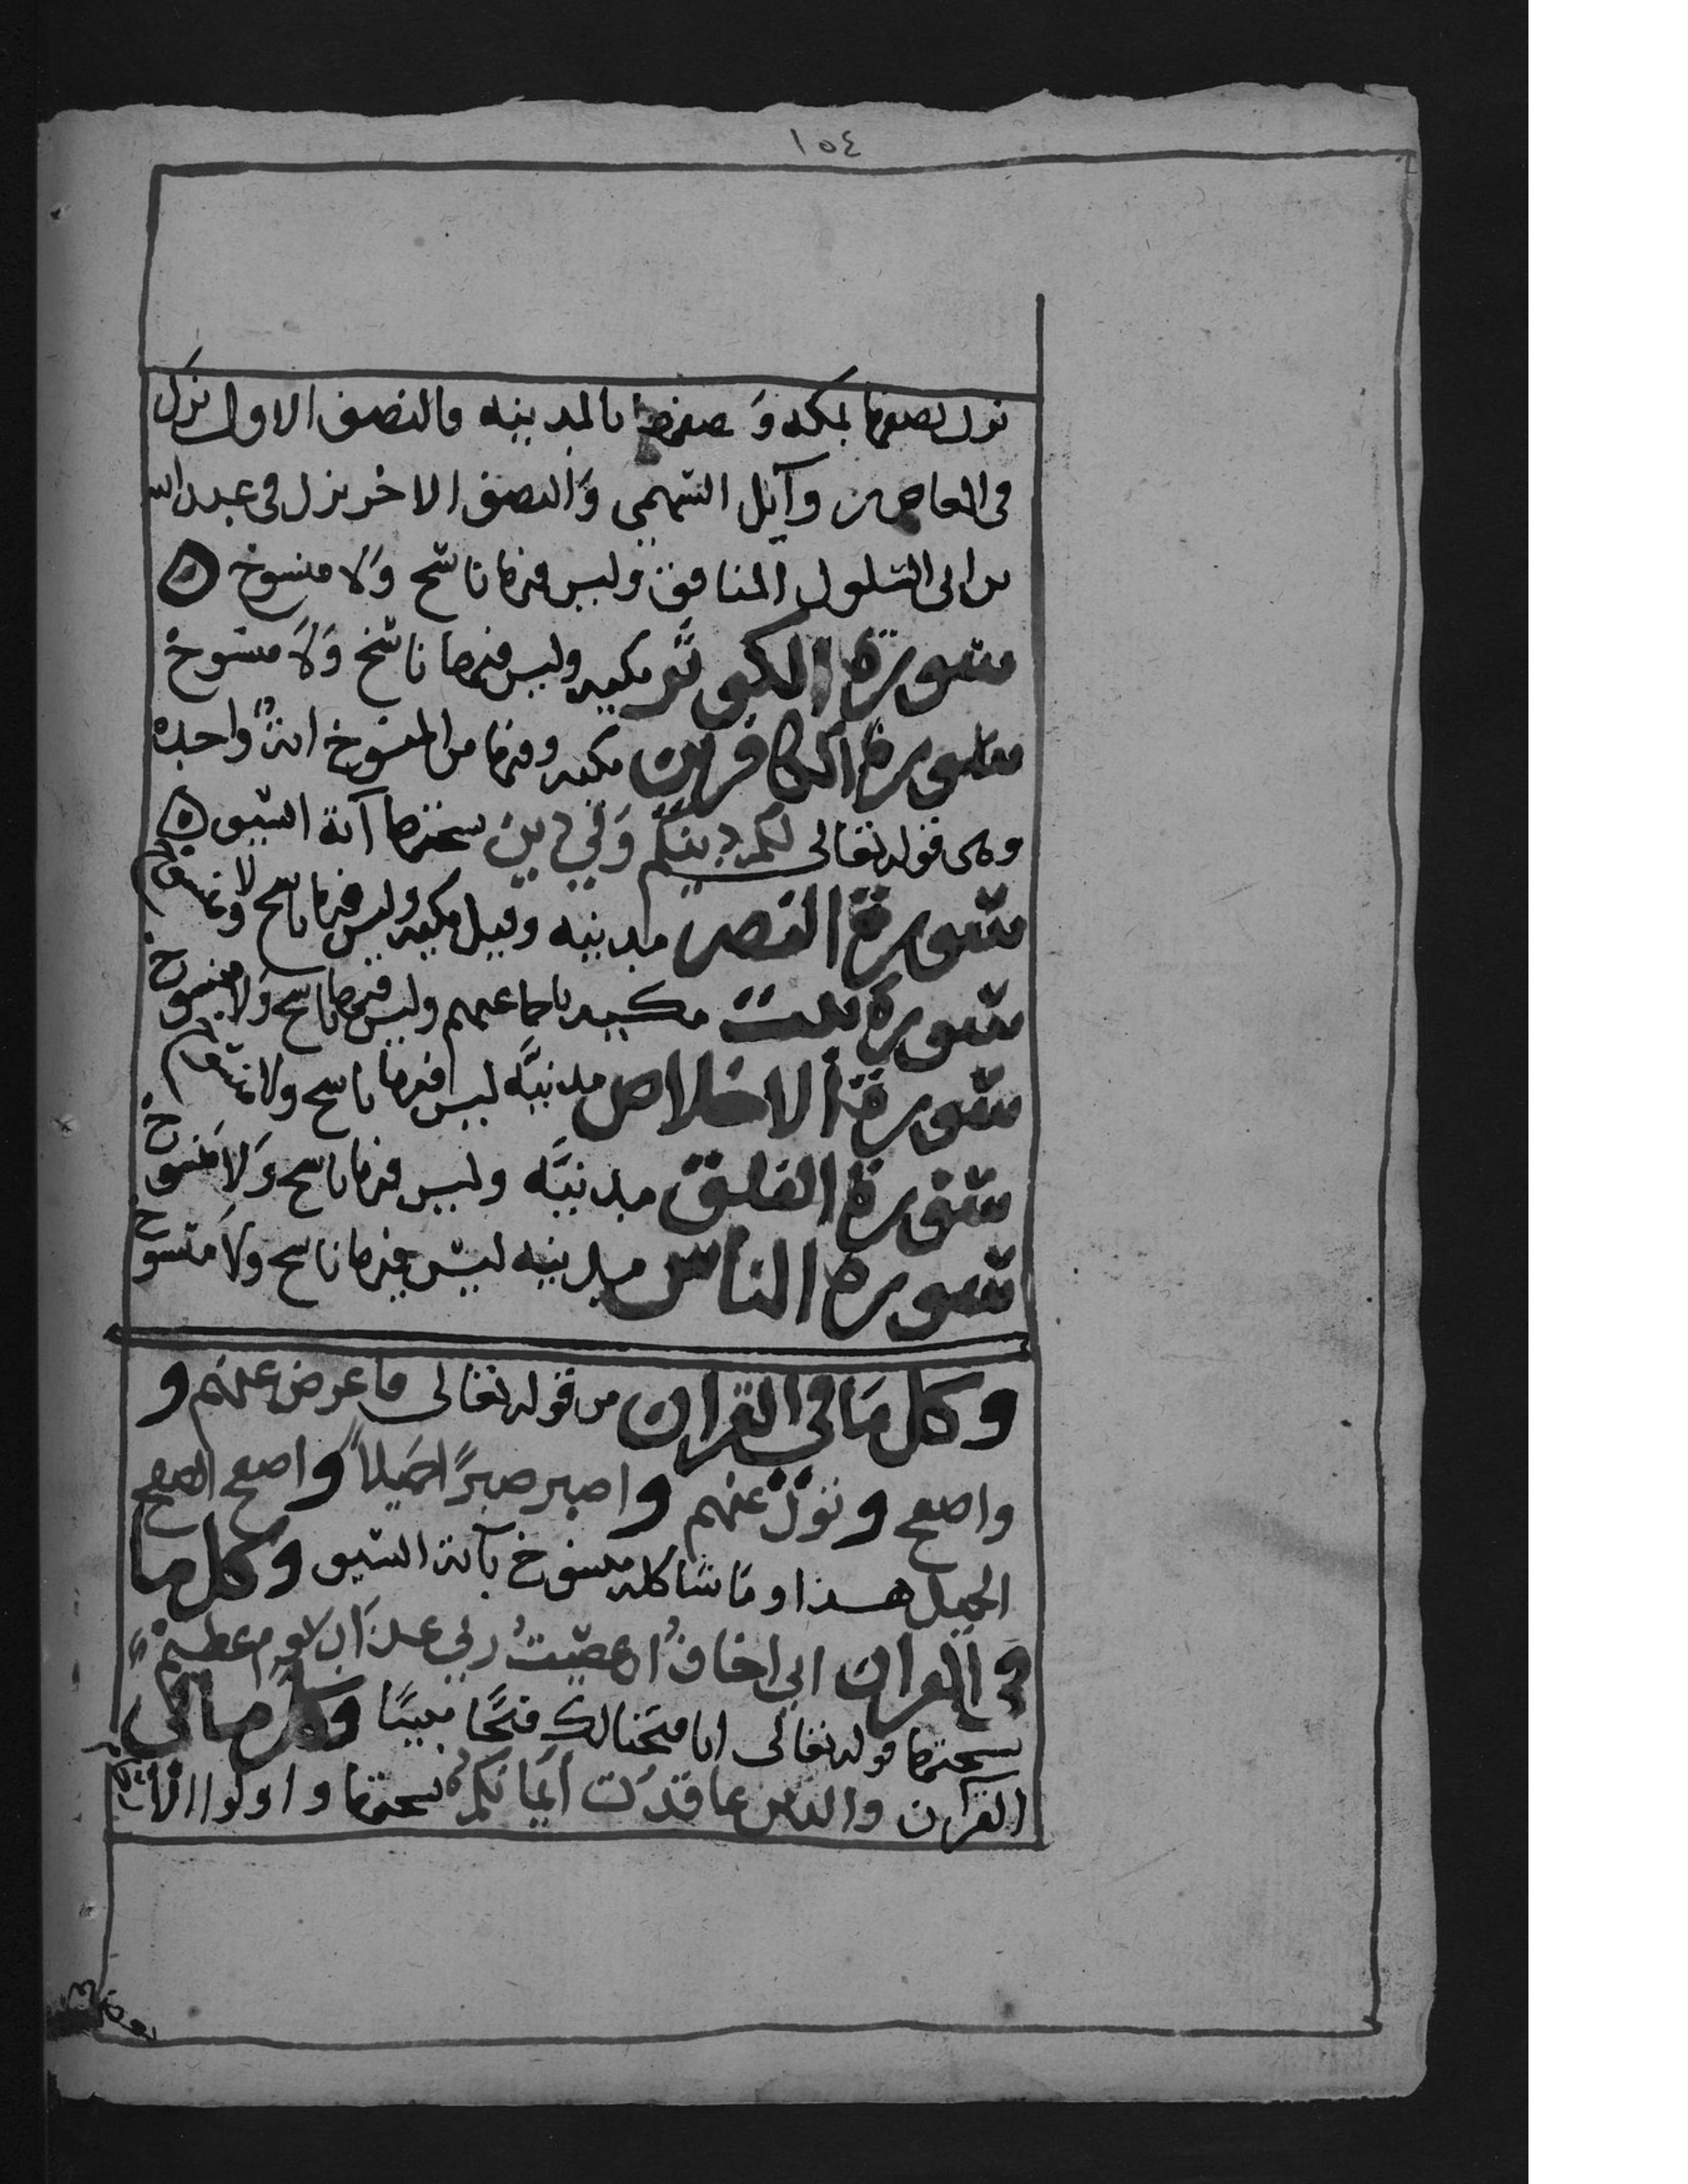 ١٥٤
نزل نصفها بمكه وَ نصفها بالمدينه فالنصف الاول نزل
في العاص بن وآئل السّهمي وَالنصف الاخر نزل في عبد الله
بن ابي السّلول المنافق وليس فيها ناسخ وَلا منسوخ ه
سورة الكوثر مكيه وليس فيها ناسخ وَلَا منسوخ
سورة الكافرين مكيه وفيها من المنسوخ ايةٌ واحده
وهى قوله تعالى لكم دينكم وَلي دين نسختها آية السّيف ه
سورة النصر مدنيه وقيل مكيه وليس فيها ناسخ ولا منسوخ
سورة تبت مكيه باجماعهم وليس فيها ناسخ وَلا منسوخ
سورة الاخلاص مدنيَّه ليس فيها ناسخ ولا منسوخ
سورة الفلق مدنيَّه وليس فيها ناسخ وَلَا منسوخ
سورة الناس مدنيه ليس فيها ناسخ ولا منسوخ
وكل مَا في القران من قوله تعالى فاعرض عنهم و
واصفح و تولّ عنهم و اصبر صبرًا جميلاً و اصفح الصفح
الجميل هذا و مَا شاكله منسوخ بآية السّيف وكل ما
في القران اني اخافُ ان عصيتُ ربي عذاب يوم عظيم
نسختها قوله تعالى انا فتحنا لك فتحًا مبينًا وكل ما في
القرآن والذين عاقدَت أيمانكم نسختها و اولوا الا